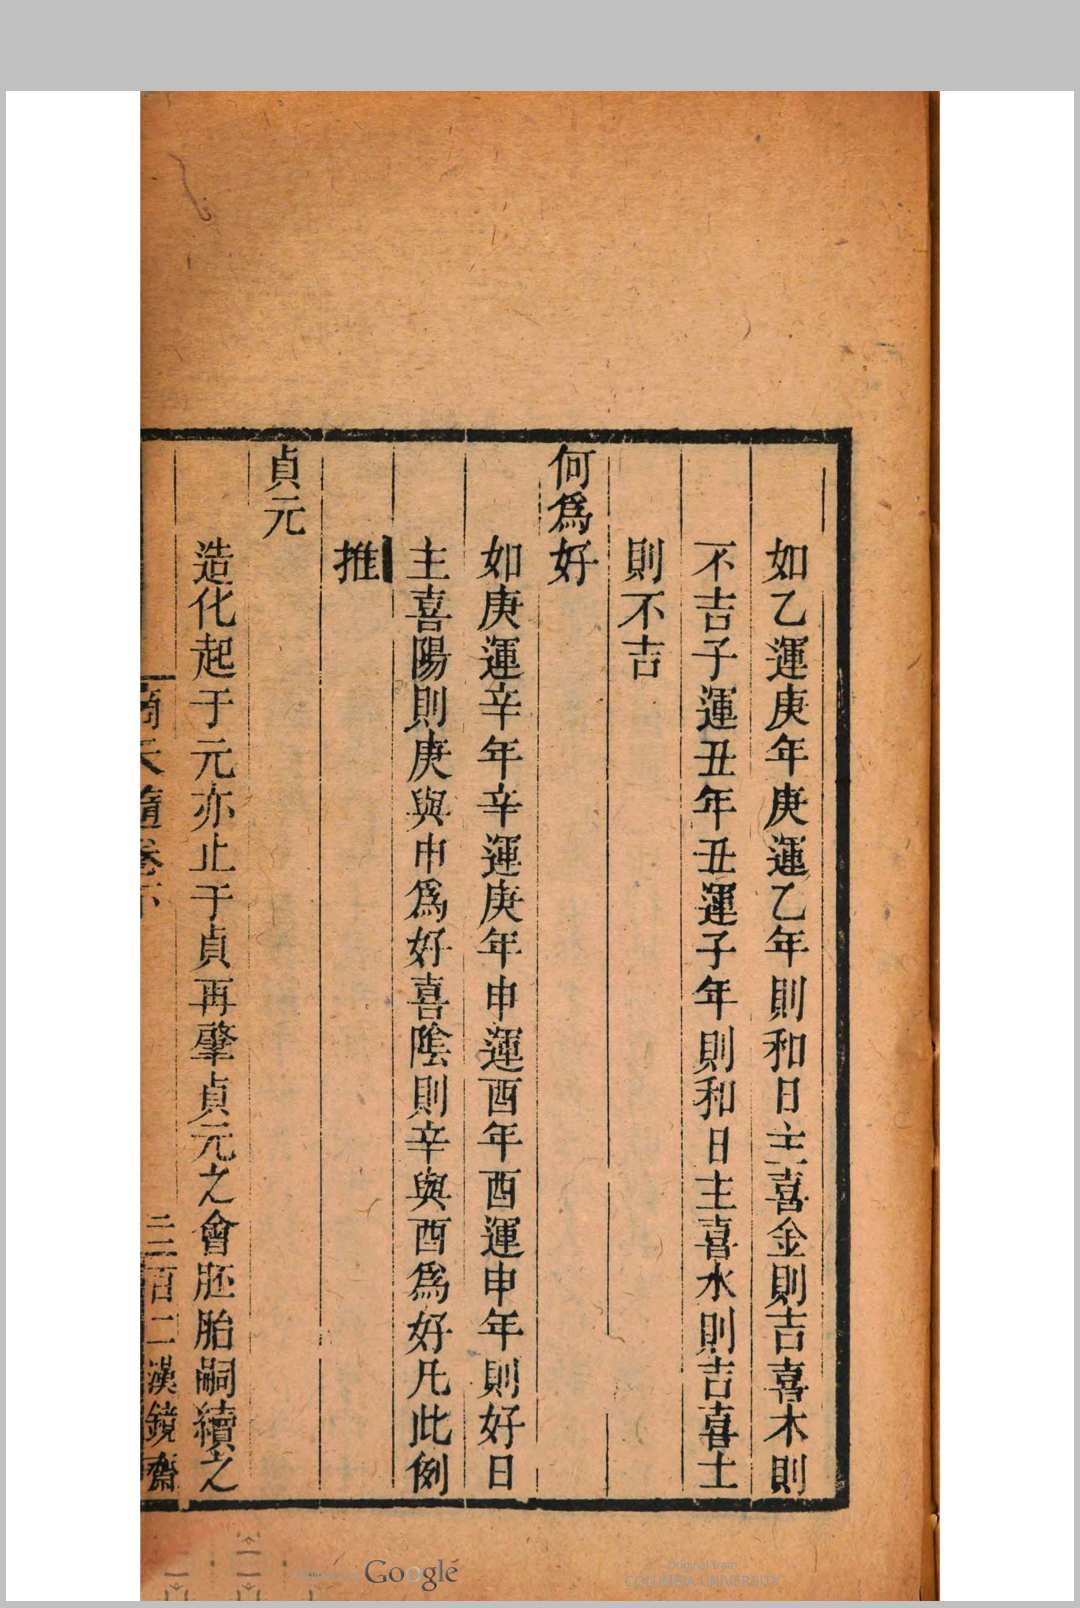 如乙運庚年庚運乙年則和日主喜金則吉喜木則
不吉子運丑年丑運子年則和日主喜水則吉喜土
則不吉
何爲好
如庚運辛年辛運庚年申運酉年酉運申年則好日
主喜陽則庚與申爲好喜陰則辛與酉爲好凡此例
推
貞元
造化起于元亦止于貞再肇貞元之會胚胎嗣續之
滴天髓卷下
三百二漢鏡齋
Google
Original from
COLUMBIA UNIVERSITY